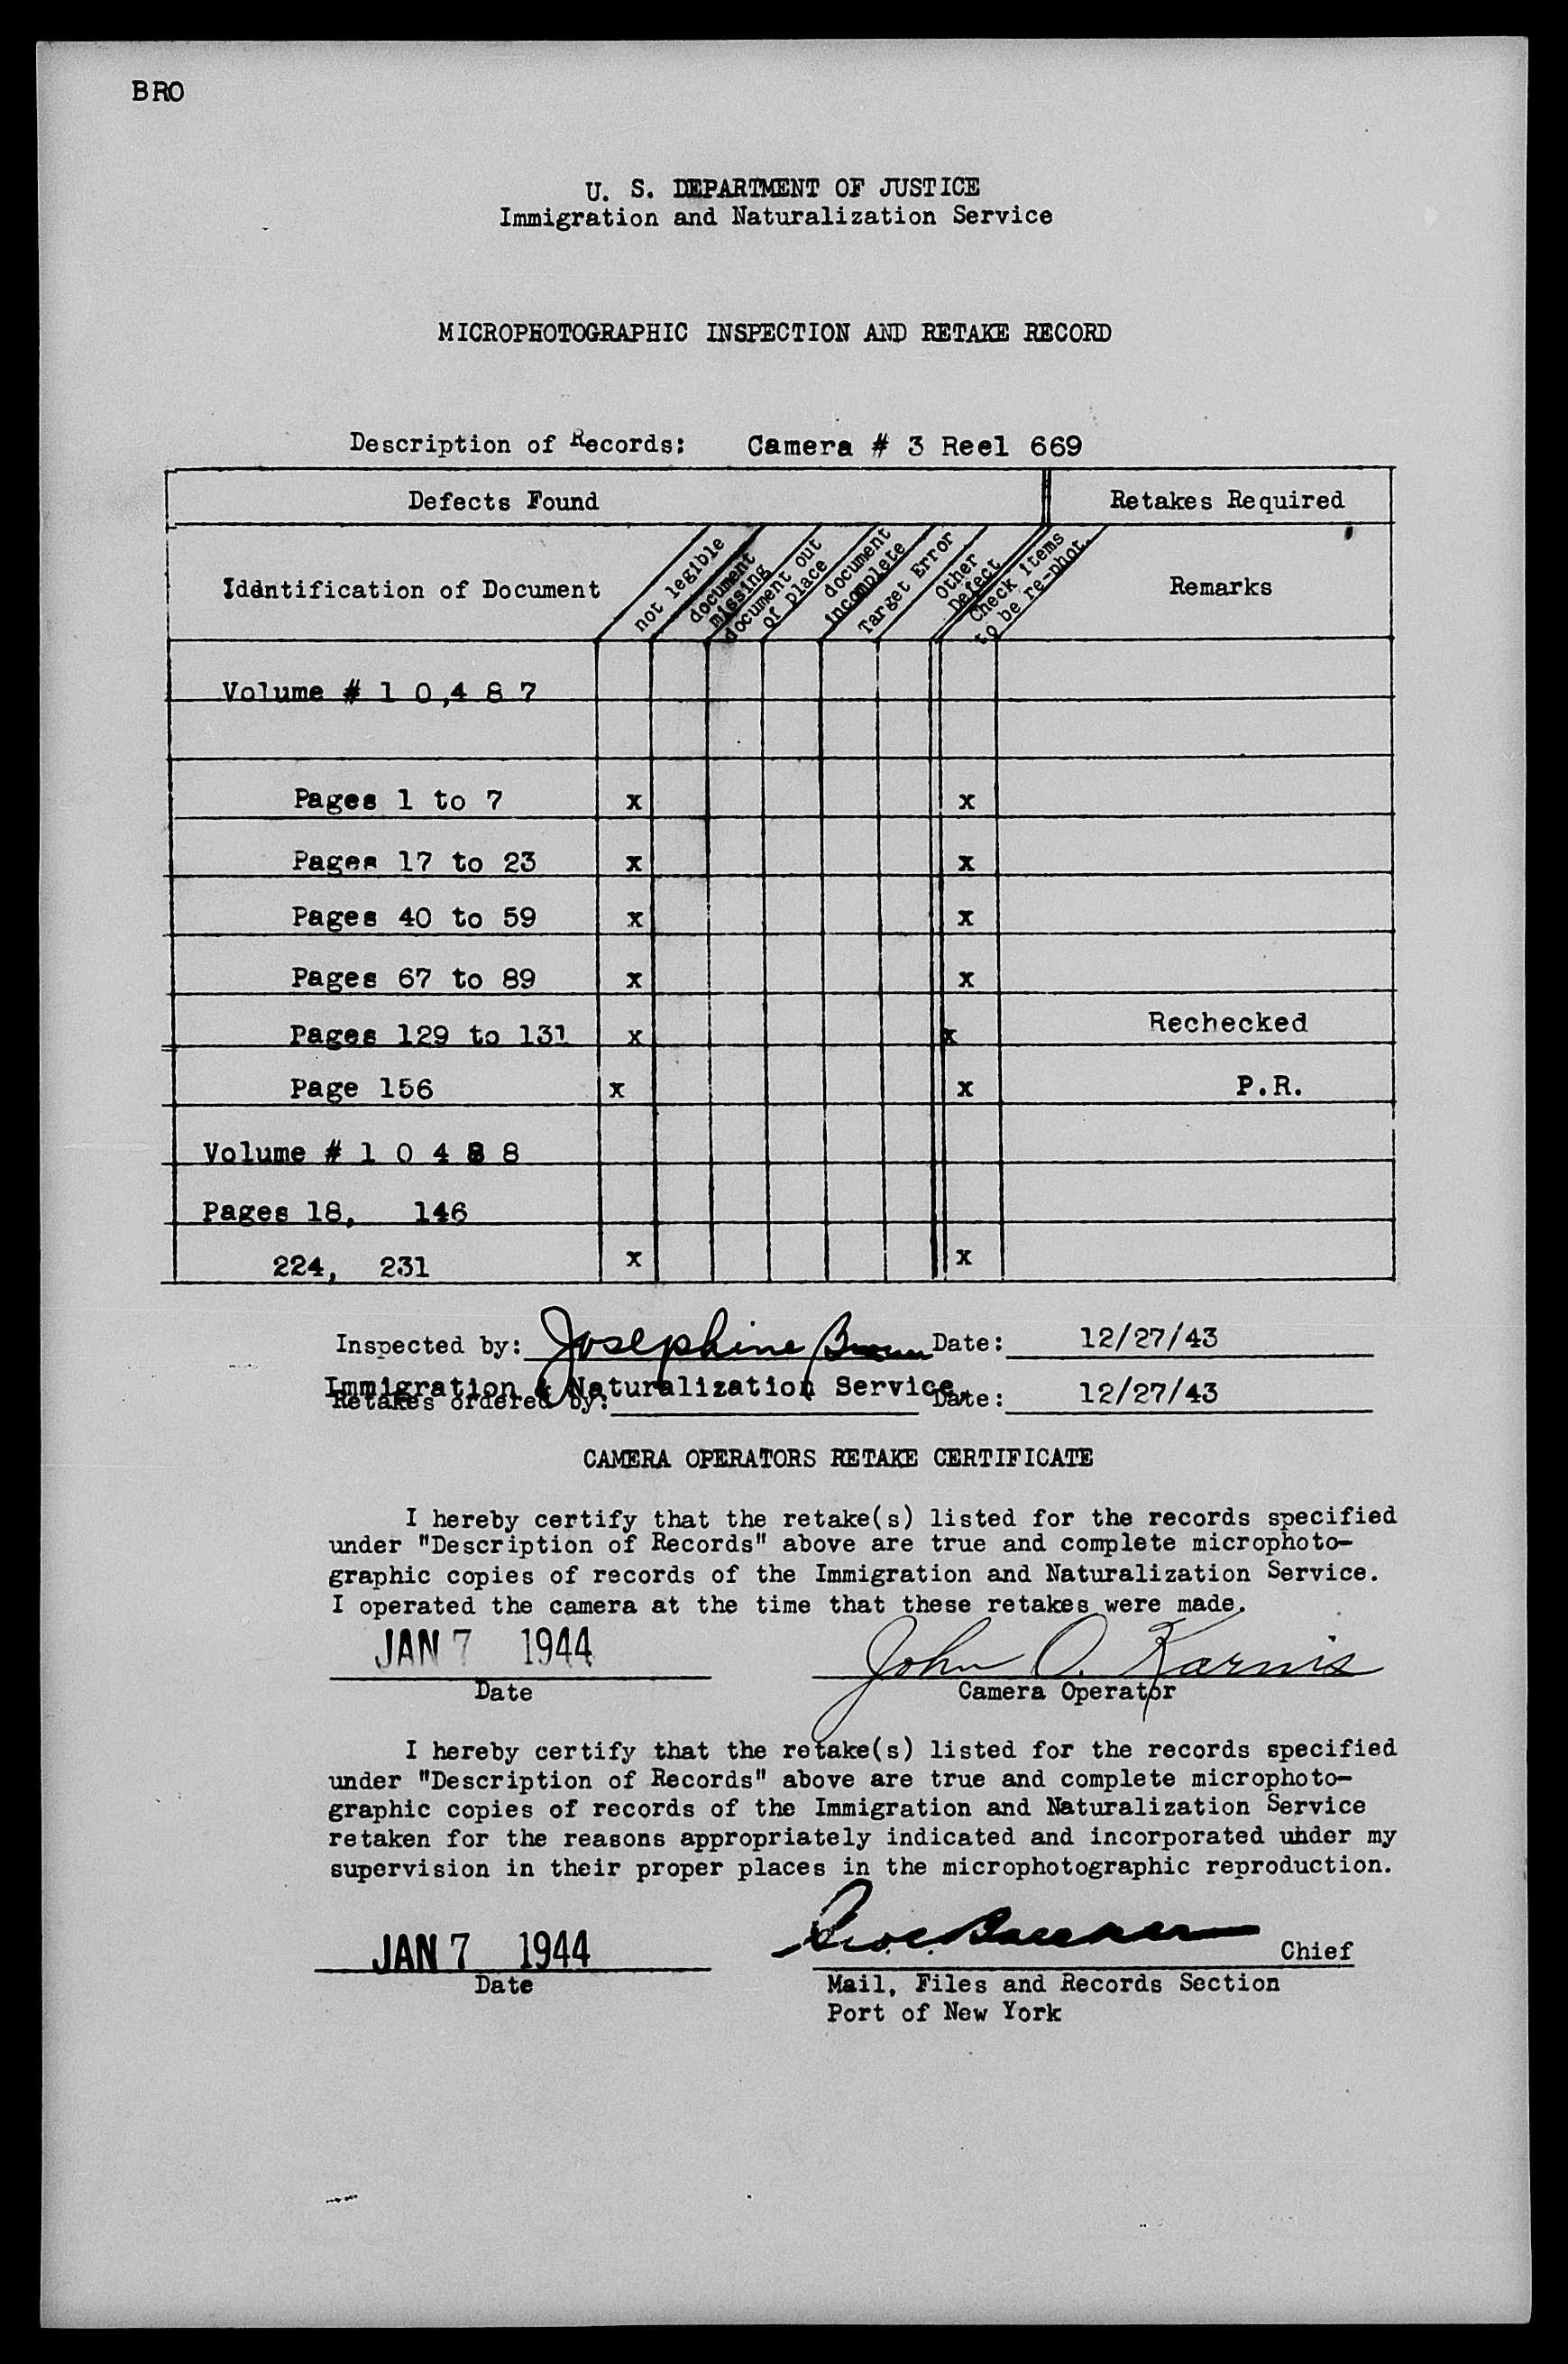 BRO
U. S. DEPARTMENT OF JUSTICE
Immigration and Naturalization Service
MICROPHOTOGRAPHIC INSPECTION AND RETAKE RECORD
Description of Records: Camera # 3 Reel 669
Defects Found Retakes Required
Identification of Document
not legible
document missing
document out of place
document incomplete
Target Error
Other Defect
Check Items to be re-phot.
Remarks
Volume # 1 0,4 8 7
Pages 1 to 7 x x
Pages 17 to 23 x x
Pages 40 to 59 x x
Pages 67 to 89 x x
Pages 129 to 131 x x Rechecked
Page 156 x x P.R.
Volume # 1 0 4 8 8
Pages 18, 146
224, 231 x x
Inspected by: Josephine Brown Date: 12/27/43
Immigration & Naturalization Service,
Retakes ordered by: Date: 12/27/43
CAMERA OPERATORS RETAKE CERTIFICATE
I hereby certify that the retake(s) listed for the records specified
under "Description of Records" above are true and complete microphoto-
graphic copies of records of the Immigration and Naturalization Service.
I operated the camera at the time that these retakes were made.
JAN 7 1944 John O. Karnis
Date Camera Operator
I hereby certify that the retake(s) listed for the records specified
under "Description of Records" above are true and complete microphoto-
graphic copies of records of the Immigration and Naturalization Service
retaken for the reasons appropriately indicated and incorporated uhder my
supervision in their proper places in the microphotographic reproduction.
JAN 7 1944 Chief
Date Mail, Files and Records Section
Port of New York